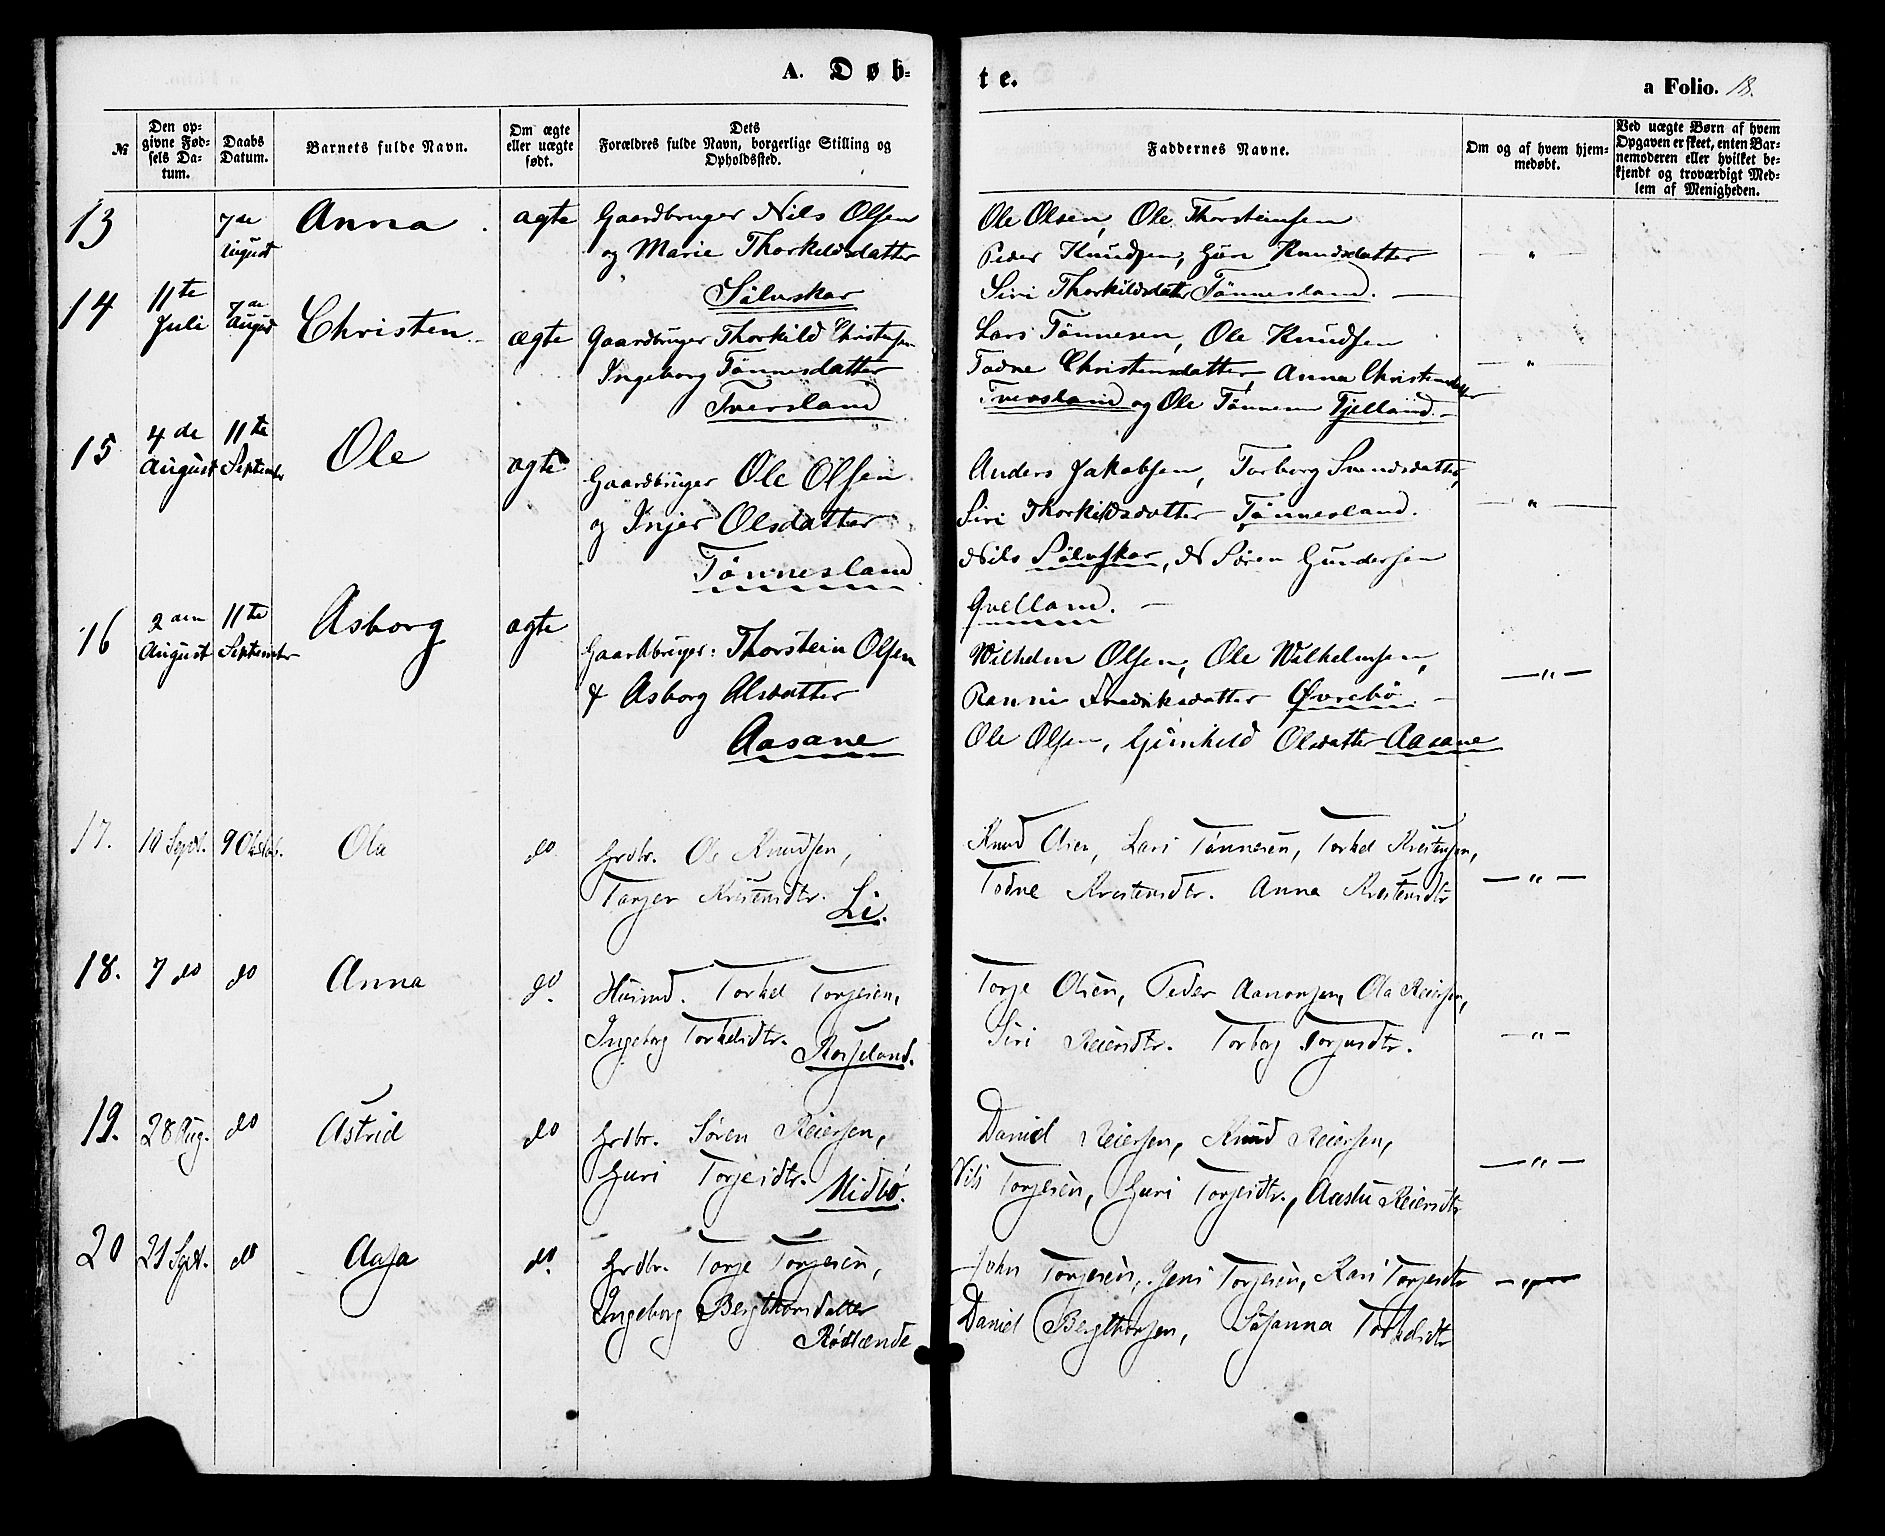 A. Døb-
te.
a Folio. 18.
№
Den op-
givne Fød-
sels Da-
tum.
Daabs
Datum.
Barnets fulde Navn.
Om ægte
eller uægte
født.
Dets
Forældres fulde Navn, borgerlige Stilling og
Opholdssted.
Faddernes Navne.
Om og af hvem hjem-
medøbt.
Ved uægte Børn af hvem
Opgaven er skeet, enten Bar-
nemoderen eller hvilket be-
kjendt og troværdigt Med-
lem af Menigheden.
13 7de August Anna ægte Gaardbruger Nils Olsen
og Marie Thorkildsdatter
Sølvskar
Ole Olsen, Ole Thorsteinsen
Peder Knudsen, Guri Knudsdatter
Siri Thorkildsdatter Tønnesland. — " —
14 11te Juli 7de August Christen ægte Gaardbruger Thorkild Christensen
Ingeborg Tønnesdatter
Tversland
Lars Tønnesen, Ole Knudsen
Todne Christensdatter, Anna Christensdatter
Tversland og Ole Tønnesen Fjelland. — " —
15 4de August 11te September Ole ægte Gaardbruger Ole Olsen
og Injer Olsdatter
Tønnesland
Anders Jakobsen, Torborg Svendsdatter,
Siri Thorkildsdatter Tønnesland.
Nils Sølvskar, Søren Gundersen
— " —
16 2den August 11te September Asborg ægte Gaardbruger: Thorstein Olsen
& Asborg Alsdatter
Aasane
Wilhelm Olsen, Ole Wilhelmsen,
Fredriksdatter Øvrebø. —
Ole Olsen, Gunhild Olsdatter Aasane — " —
17. 10 Sept. 9 Oktob. Ola do Grdbr. Ole Knudsen,
Tonjer Kristensdtr. Li.
Knud Olsen, Lars Tønnesen, Torkel Kristensen,
Todne Kristensdtr. Anna Kristensdtr — " —
18. 7 do do Anna do. Husmd. Torkel Torjesen,
Ingeborg Torkelsdtr. Rosseland.
Torje Olsen, Peder Aanonsen, Ola Reiersen,
Siri Reiersdtr. Torborg Torjusdtr. — " —
19. 28 Aug. do Astrid do Grdbr. Søren Reiersen,
Guri Torjesdtr. Midbø.
Daniel Reiersen, Knud Reiersen,
Nils Torjesen, Guri Torjesdtr., Aaste Reiersdtr — " —
20 21 Sept. do Aasa do. Grdbr. Torje Torjesen,
Ingeborg Bergthorsdatter
Rødlænde
John Torjesen, Jens Torjesen, Kari Torjesdtr
Daniel Bergthorsen, Susanna Torkelsdtr — " —